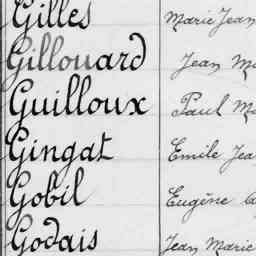 Gilles Marie Jean
Gillouard Jean Ma
Guilloux Paul Ma
Gingat Emile Jea
Gobil Eugène
Godais Jean Marie